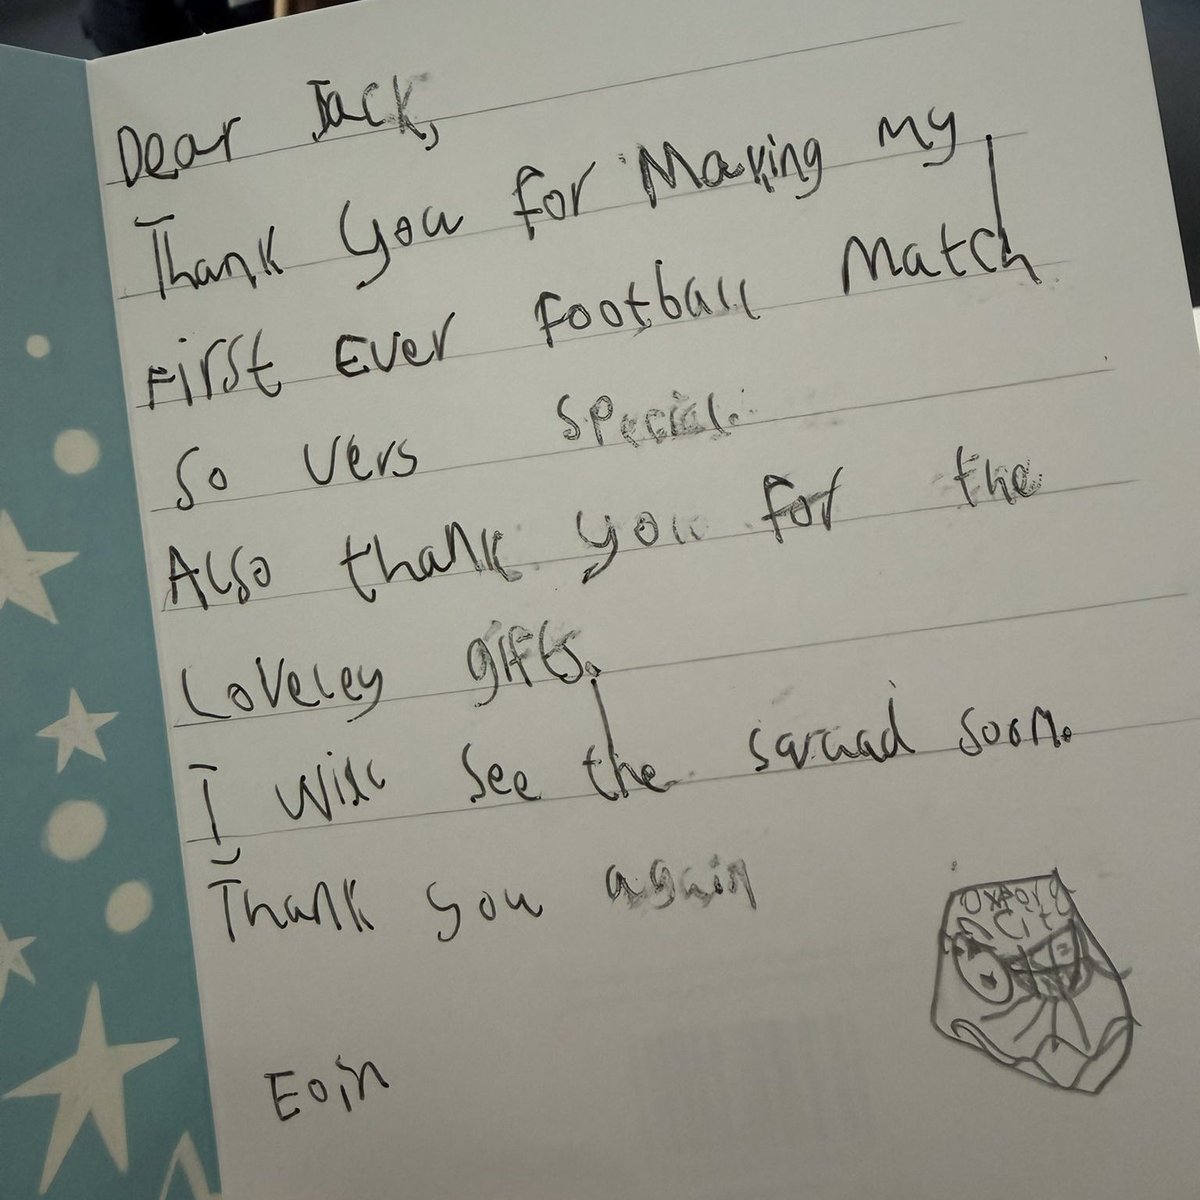 Dear Jack,
Thank you for Making my
First Ever Football Match
So vers special.
Also thank you for the
Loveley gifts.
I will see the sqraad soon.
Thank you again
Eoin
Oxford